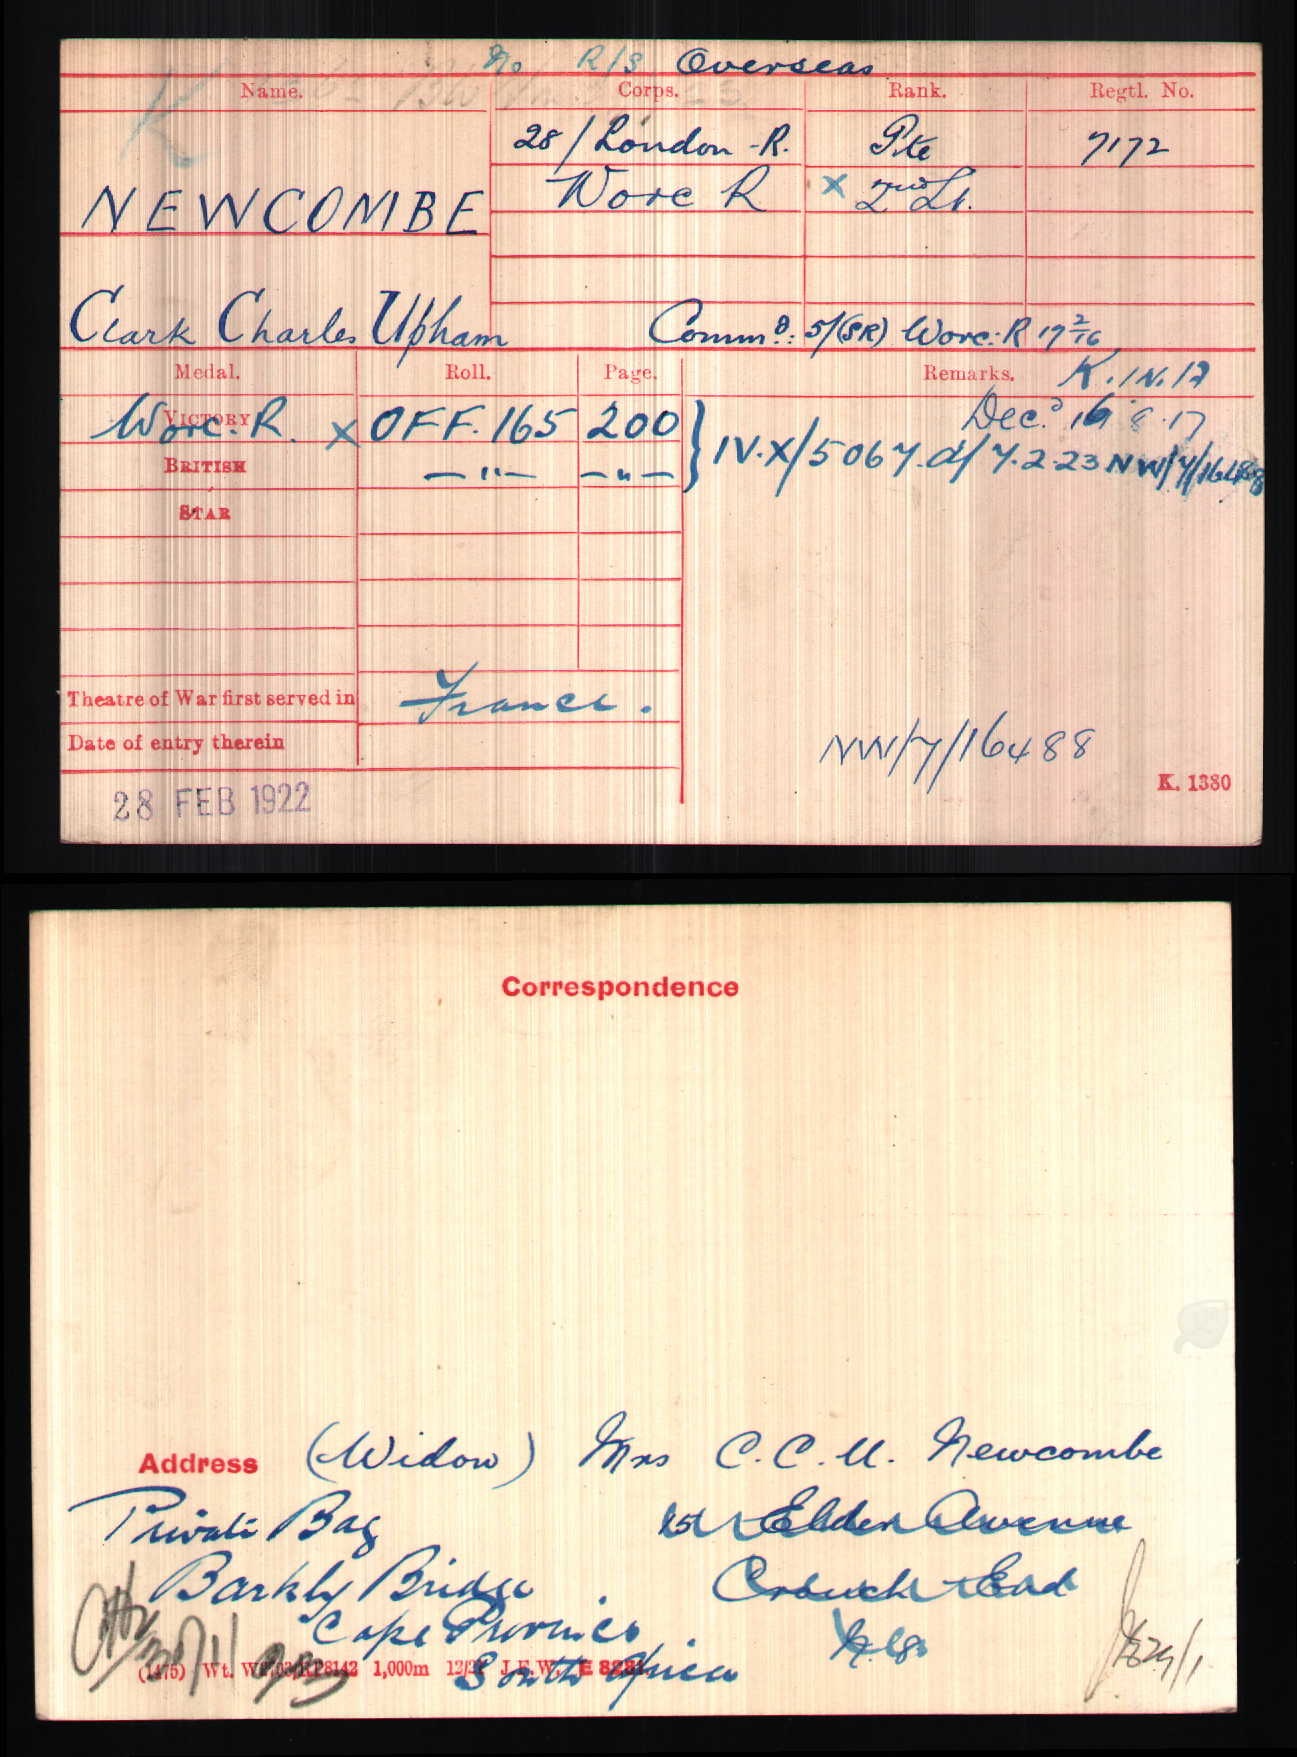 No R/S Overseas
Name. Corps. Rank. Regtl. No.
28/London R. Pte 7172
NEWCOMBE Worc R X 2nd Lt.
Clark Charles Upham Commd: 5/(SR) Worc: R 17 2/16
Medal. Roll. Page. Remarks. K. IN. A
VICTORY Worc. R. X OFF. 165 200 Decd 16 8.17
BRITISH —"— —"— } IV.X/5067.d/7.2.23 NW/7/16488
STAR
Theatre of War first served in France.
Date of entry therein
NW/7/16488
28 FEB 1922 K. 1380
Correspondence
Address (Widow) Mrs C. C. U. Newcombe
Private Bag Elder Avenue
Barkly Bridge Crouch End
Cape Province N.8
South Africa
(1475) Wt. 1,000m J.F.W.